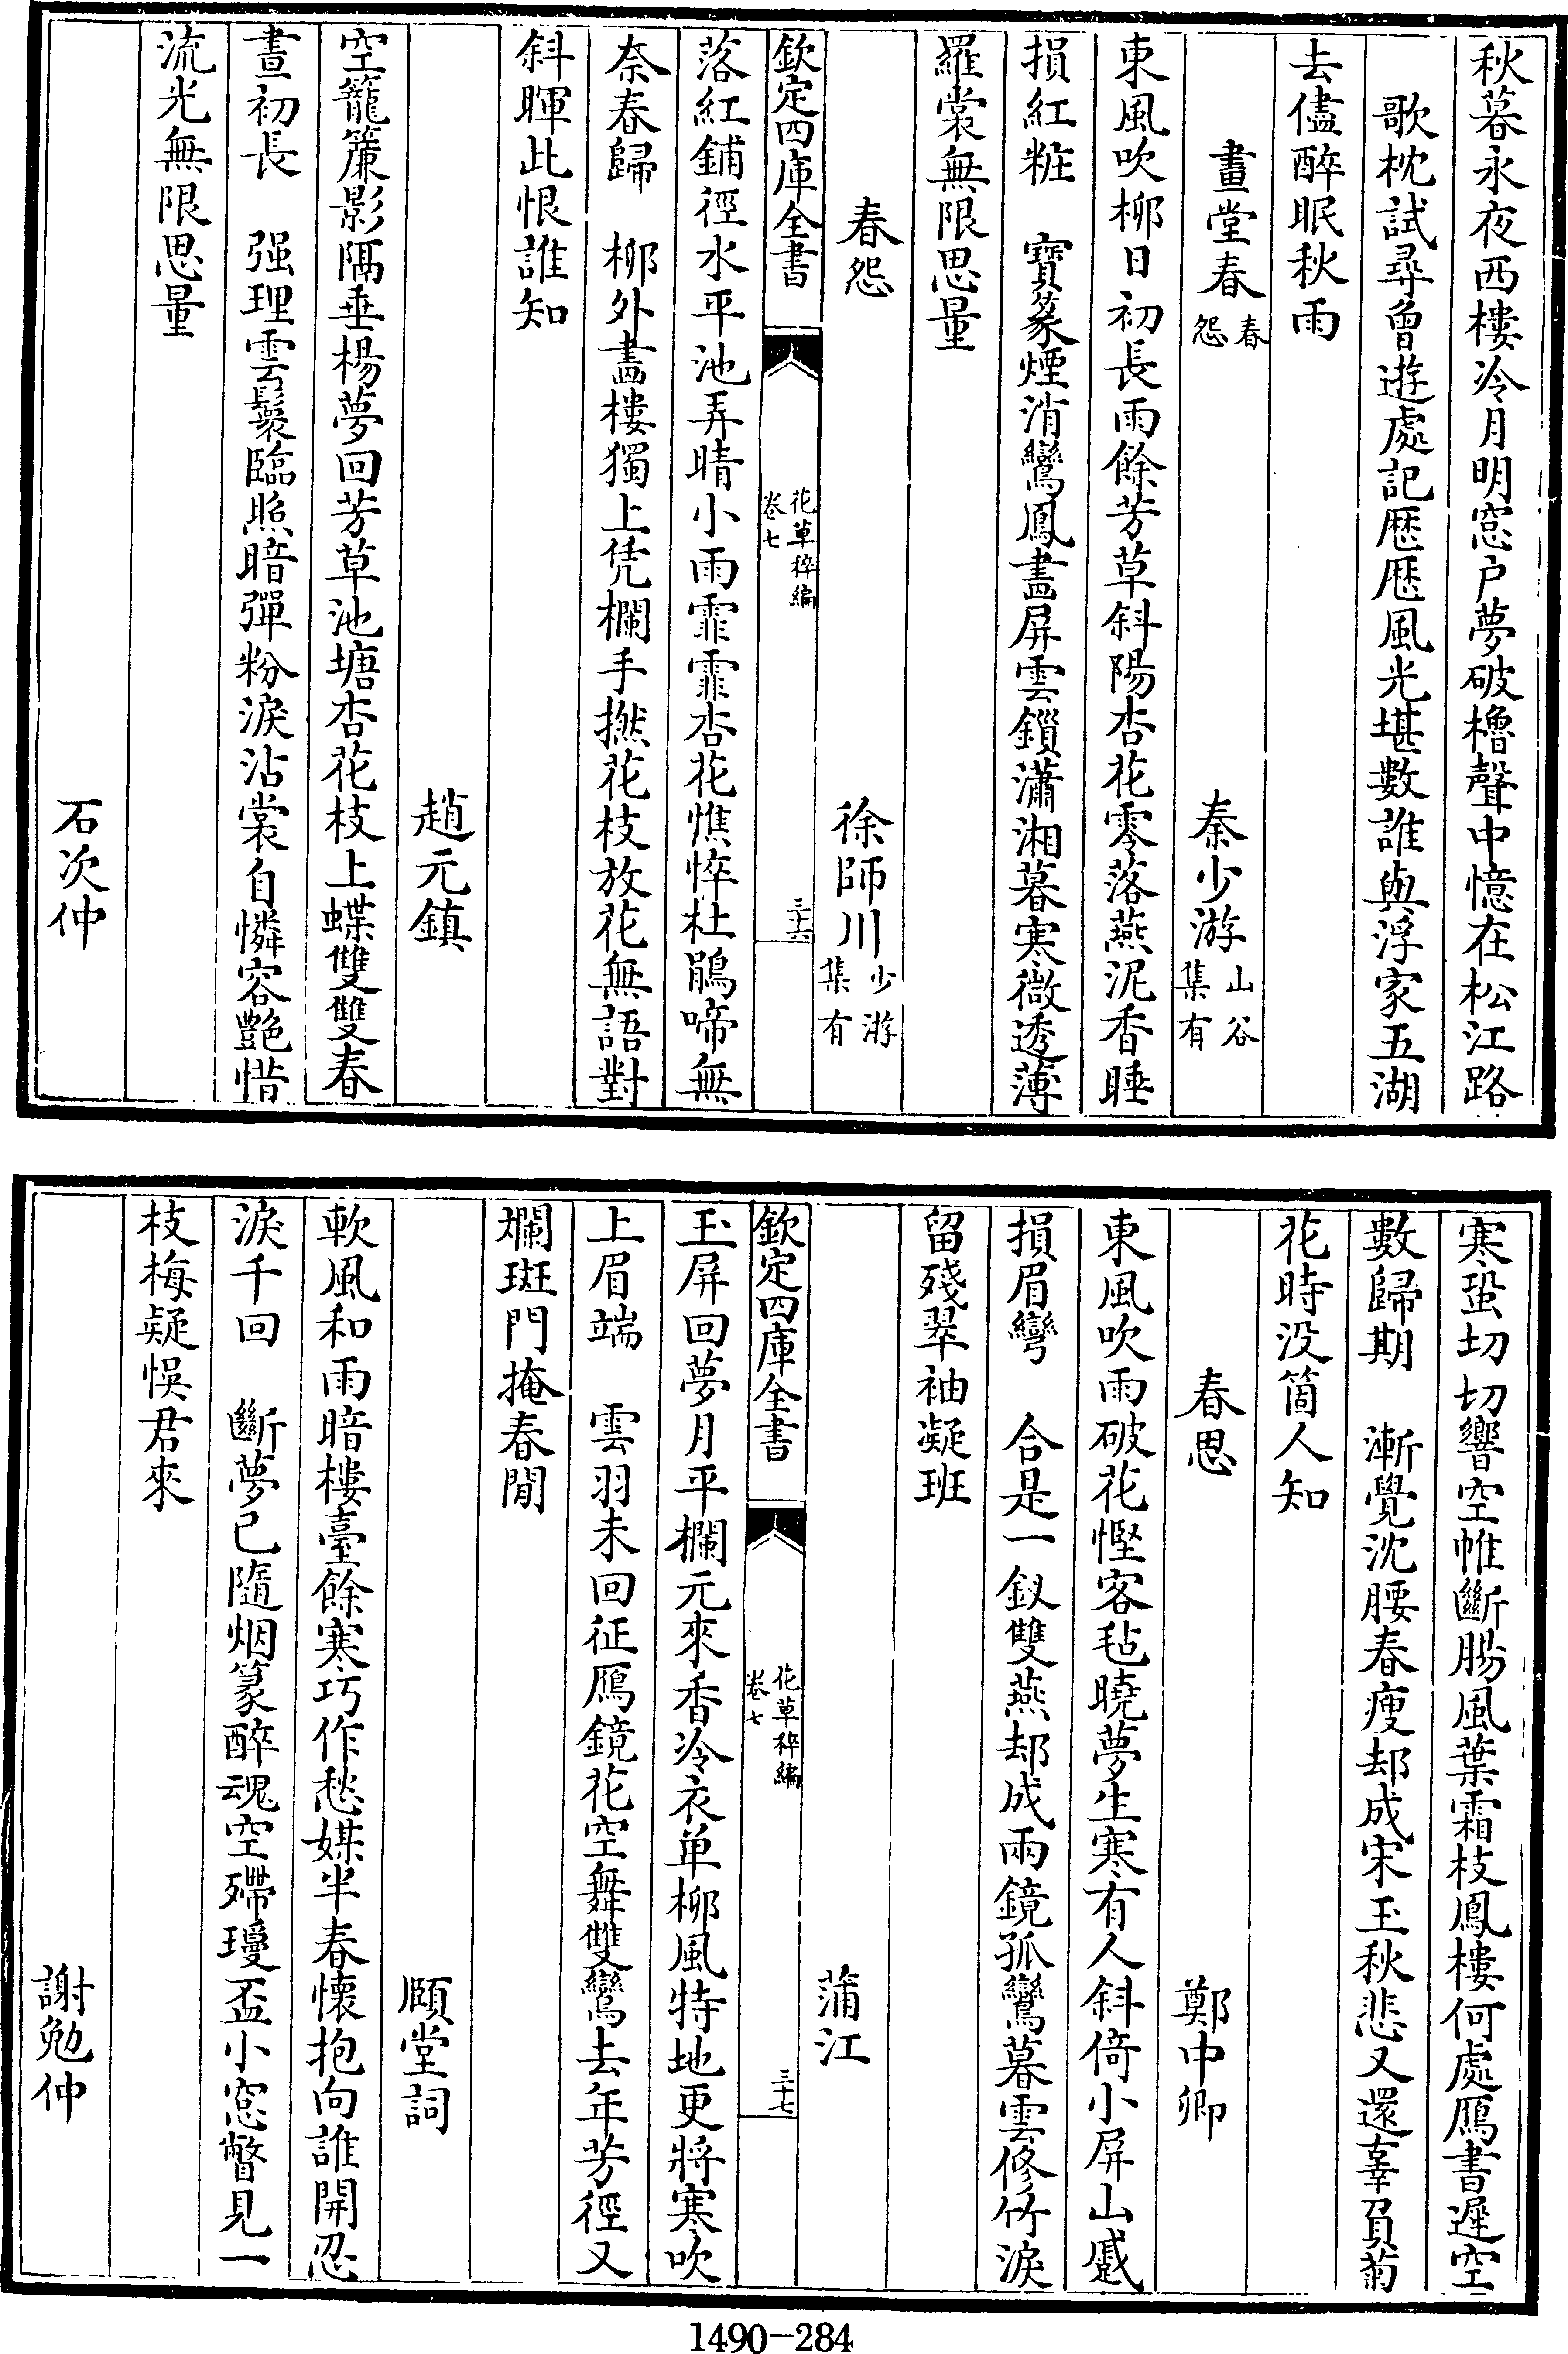 秋暮永夜西樓冷月明窓户夢破櫓聲中憶在松江路
歌枕試尋曾遊處記歴歴風光堪數誰與浮家五湖
去儘醉眠秋雨
畫堂春春怨　秦少游山谷集有
東風吹柳日初長雨餘芳草斜陽杏花零落燕泥香睡
損紅粧　寶篆煙消鸞鳳畵屏雲鎻瀟湘暮寒微透薄
羅裳無限思量
春怨　徐師川少游集有
欽定四庫全書　花草稡編卷七　三十六
落紅鋪徑水平池弄晴小雨霏霏杏花憔悴杜鵑啼無
奈春歸　柳外畵樓獨上凭欄手撚花枝放花無語對
斜暉此恨誰知
趙元鎮
空籠簾影隔垂楊夢回芳草池塘杏花枝上蝶雙雙春
晝初長　强理雲鬟臨照暗彈粉淚沾裳自憐容艷惜
流光無限思量
石次仲
寒蛩切切響空帷斷腸風葉霜枝鳳樓何處鴈書遲空
數歸期　漸覺沈腰春瘦却成宋玉秋悲又還辜負菊
花時没箇人知
春思　鄭中卿
東風吹雨破花慳客毡曉夢生寒有人斜倚小屏山蹙
損眉彎　合是一釵雙燕却成兩鏡孤鸞暮雲修竹淚
留殘翠袖凝班
蒲江
欽定四庫全書　花草稡編卷七　三十七
玉屏回夢月平欄元來香冷衣单柳風特地更將寒吹
上眉端　雲羽未回征鴈鏡花空舞雙鸞去年芳徑又
斕斑門掩春閒
頤堂詞
軟風和雨暗樓臺餘寒巧作愁媒半春懷抱向誰開忍
淚千回　斷夢已隨烟篆醉魂空殢瓊盃小窓瞥見一
枝梅疑悞君來
謝勉仲
1490—284